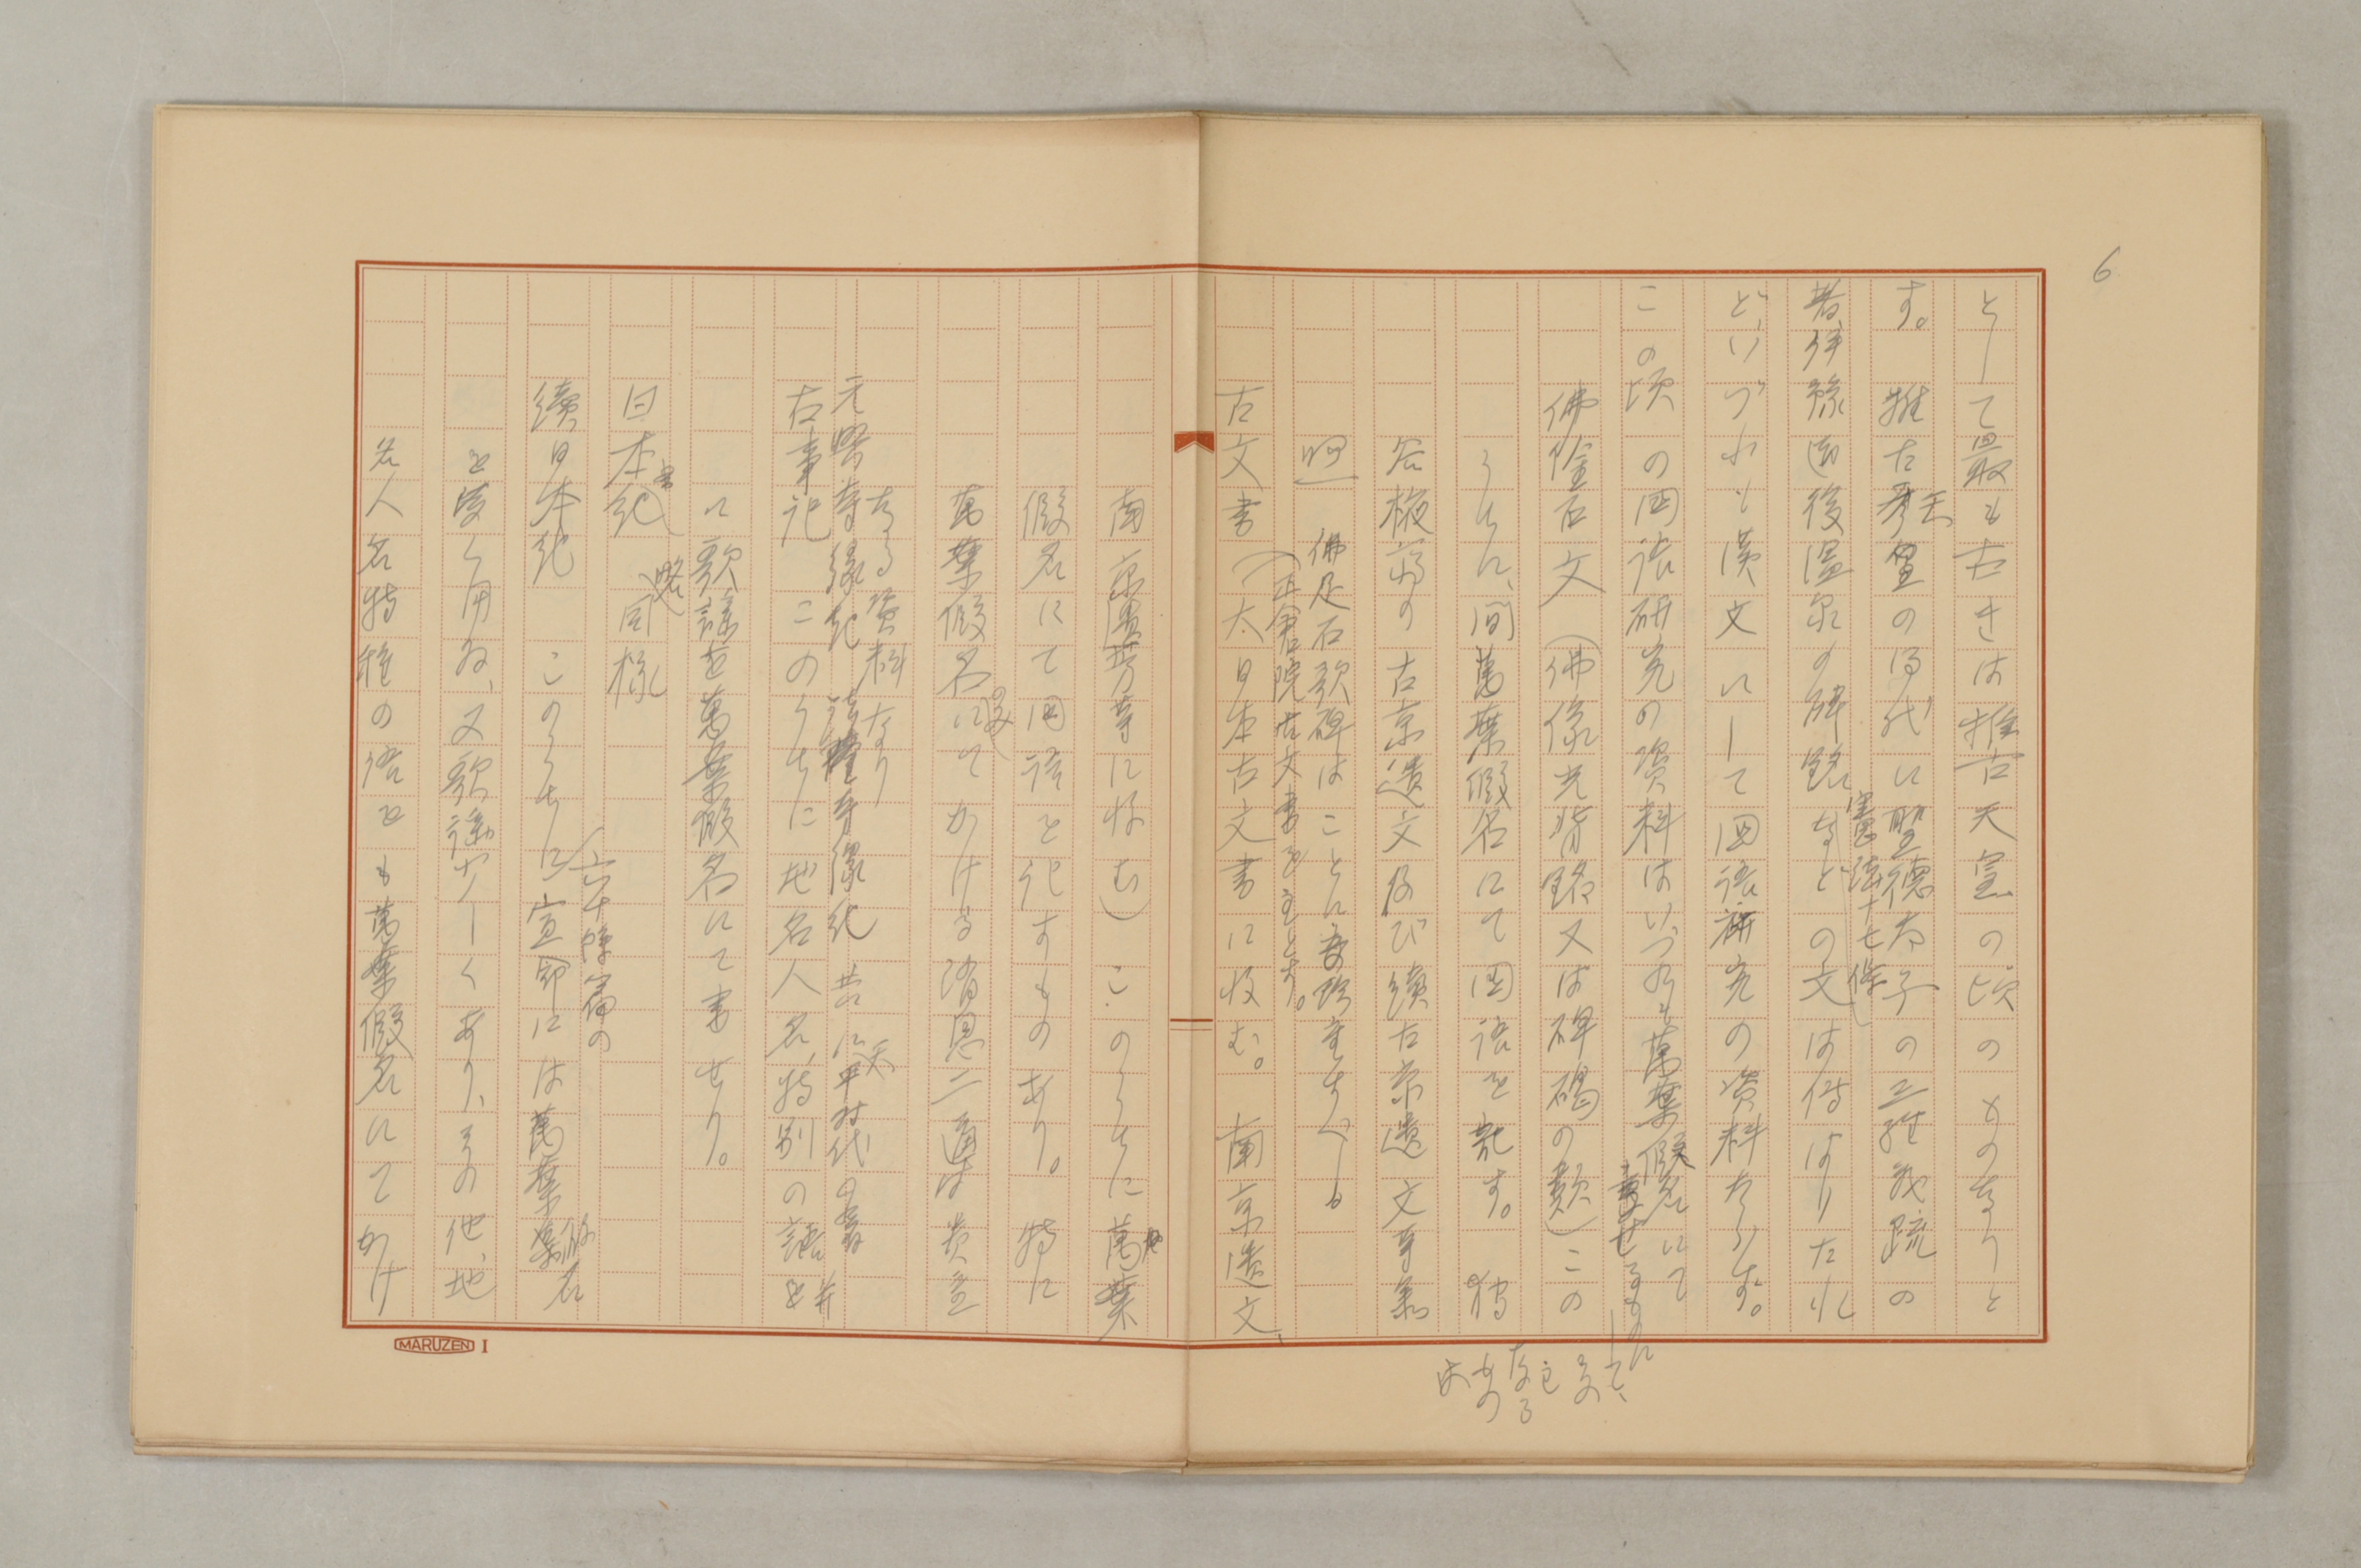 6
として最も古きは推古天皇の頃のものなりと
す。推古天皇の御代に聖德太子の三經義疏の
著、伊豫道後温泉の碑銘、憲法十七條などの文は傳はりたれ
ど、いづれも漢文にして国語研究の資料たらず。
この頃の国語研究の資料はいづれも萬葉假名にて書せるものにして、その主なるものは
佛金石文（佛像光背銘又は碑碣の類）この
うちに、間萬葉假名にて国語を記す。狩
谷棭齋の古京遺文及び續古京遺文等
佛足石歌碑はことに重すべし。
古文書（正倉院古文書を主とす。大日本古文書に收む。南京遺文、
南京遺芳等に收む）このうちに萬葉
假名にて国語を記すもの あり。特に
萬葉假名にてかける消息二通は貴重
なる資料なり
元興寺縁起 法隆寺縁起 共に天平時代の書
古事記 このうちに地名人名、特別の語を
に歌謠を萬葉假名にて書せり。
日本書紀 略同様
續日本紀 このうちに六十餘篇の宣命には萬葉假名
を多く用ゐ、又歌謠少しくあり、その他、地
名人名特種の語をも萬葉假名にてかけ
MARUZEN I